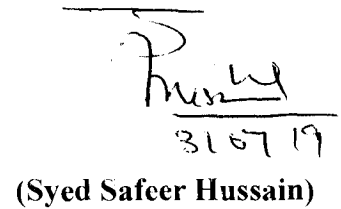 31 07 19
(Syed Safeer Hussain)